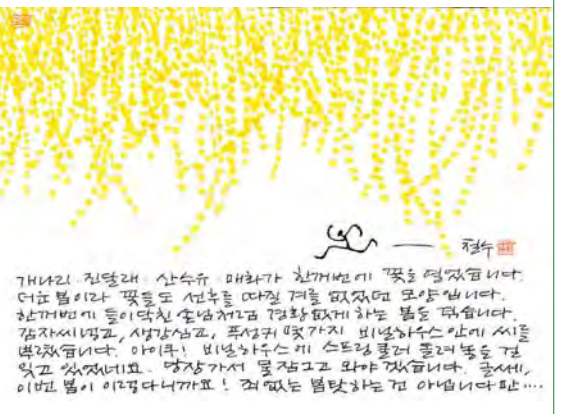 철수
개나리·진달래·산수유·매화가 한꺼번에 꽃을 열었습니다.
더운 봄이라 꽃들도 선후를 따질 겨를 없었던 모양입니다.
한꺼번에 들이닥친 손님처럼 경황없게 하는 봄을 맞습니다.
감자씨넣고, 생강심고, 푸성귀 몇가지 비닐하우스 안에 씨를
뿌렸습니다. 아이쿠! 비닐하우스에 스프링쿨러 틀어놓은 걸
잊고 있었네요. 당장가서 물 잠그고 와야겠습니다. 글쎄,
이번 봄이 이렇다니까요! 죄없는 봄탓하는 건 아닙니다만····